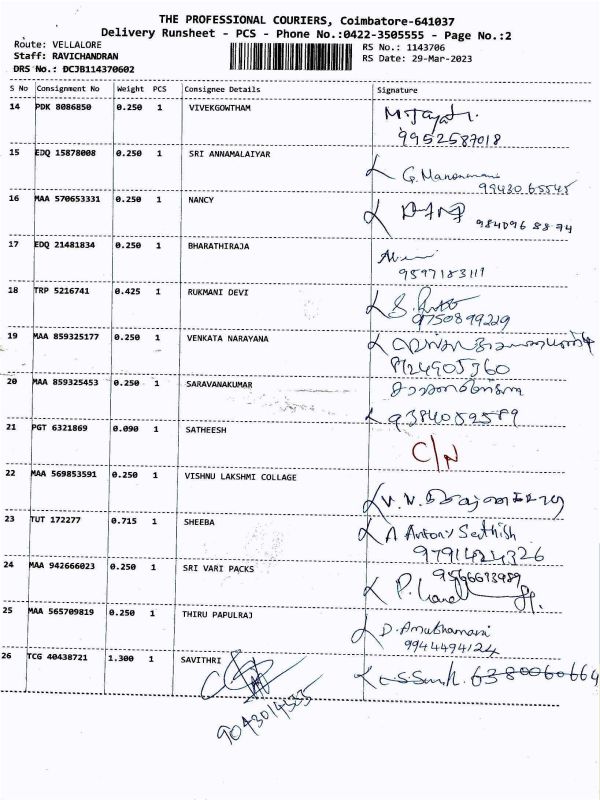 THE PROFESSIONAL COURIERS, Coimbatore-641037
Delivery Runsheet - PCS - Phone No.:0422-3505555 - Page No.:2
Route: VELLALORE RS No.: 1143706
Staff: RAVICHANDRAN RS Date: 29-Mar-2023
DRS No.: DCJB114370602
S No Consignment No Weight PCS Consignee Details Signature
14 PDK 8086850 0.250 1 VIVEKGOWTHAM
9952587018
15 EDQ 15878008 0.250 1 SRI ANNAMALAIYAR
G. Manonmani
99430 65545
16 MAA 570653331 0.250 1 NANCY
984096 8874
17 EDQ 21481834 0.250 1 BHARATHIRAJA
9597183111
18 TRP 5216741 0.425 1 RUKMANI DEVI
9750899229
19 MAA 859325177 0.250 1 VENKATA NARAYANA
8124905360
20 MAA 859325453 0.250 1 SARAVANAKUMAR
9384052589
21 PGT 6321869 0.090 1 SATHEESH
C/N
22 MAA 569853591 0.250 1 VISHNU LAKSHMI COLLAGE
23 TUT 172277 0.715 1 SHEEBA A Antony Sathish
9791424326
24 MAA 942666023 0.250 1 SRI VARI PACKS
25 MAA 565709819 0.250 1 THIRU PAPULRAJ
9944494124
26 TCG 40438721 1.300 1 SAVITHRI 6380060664